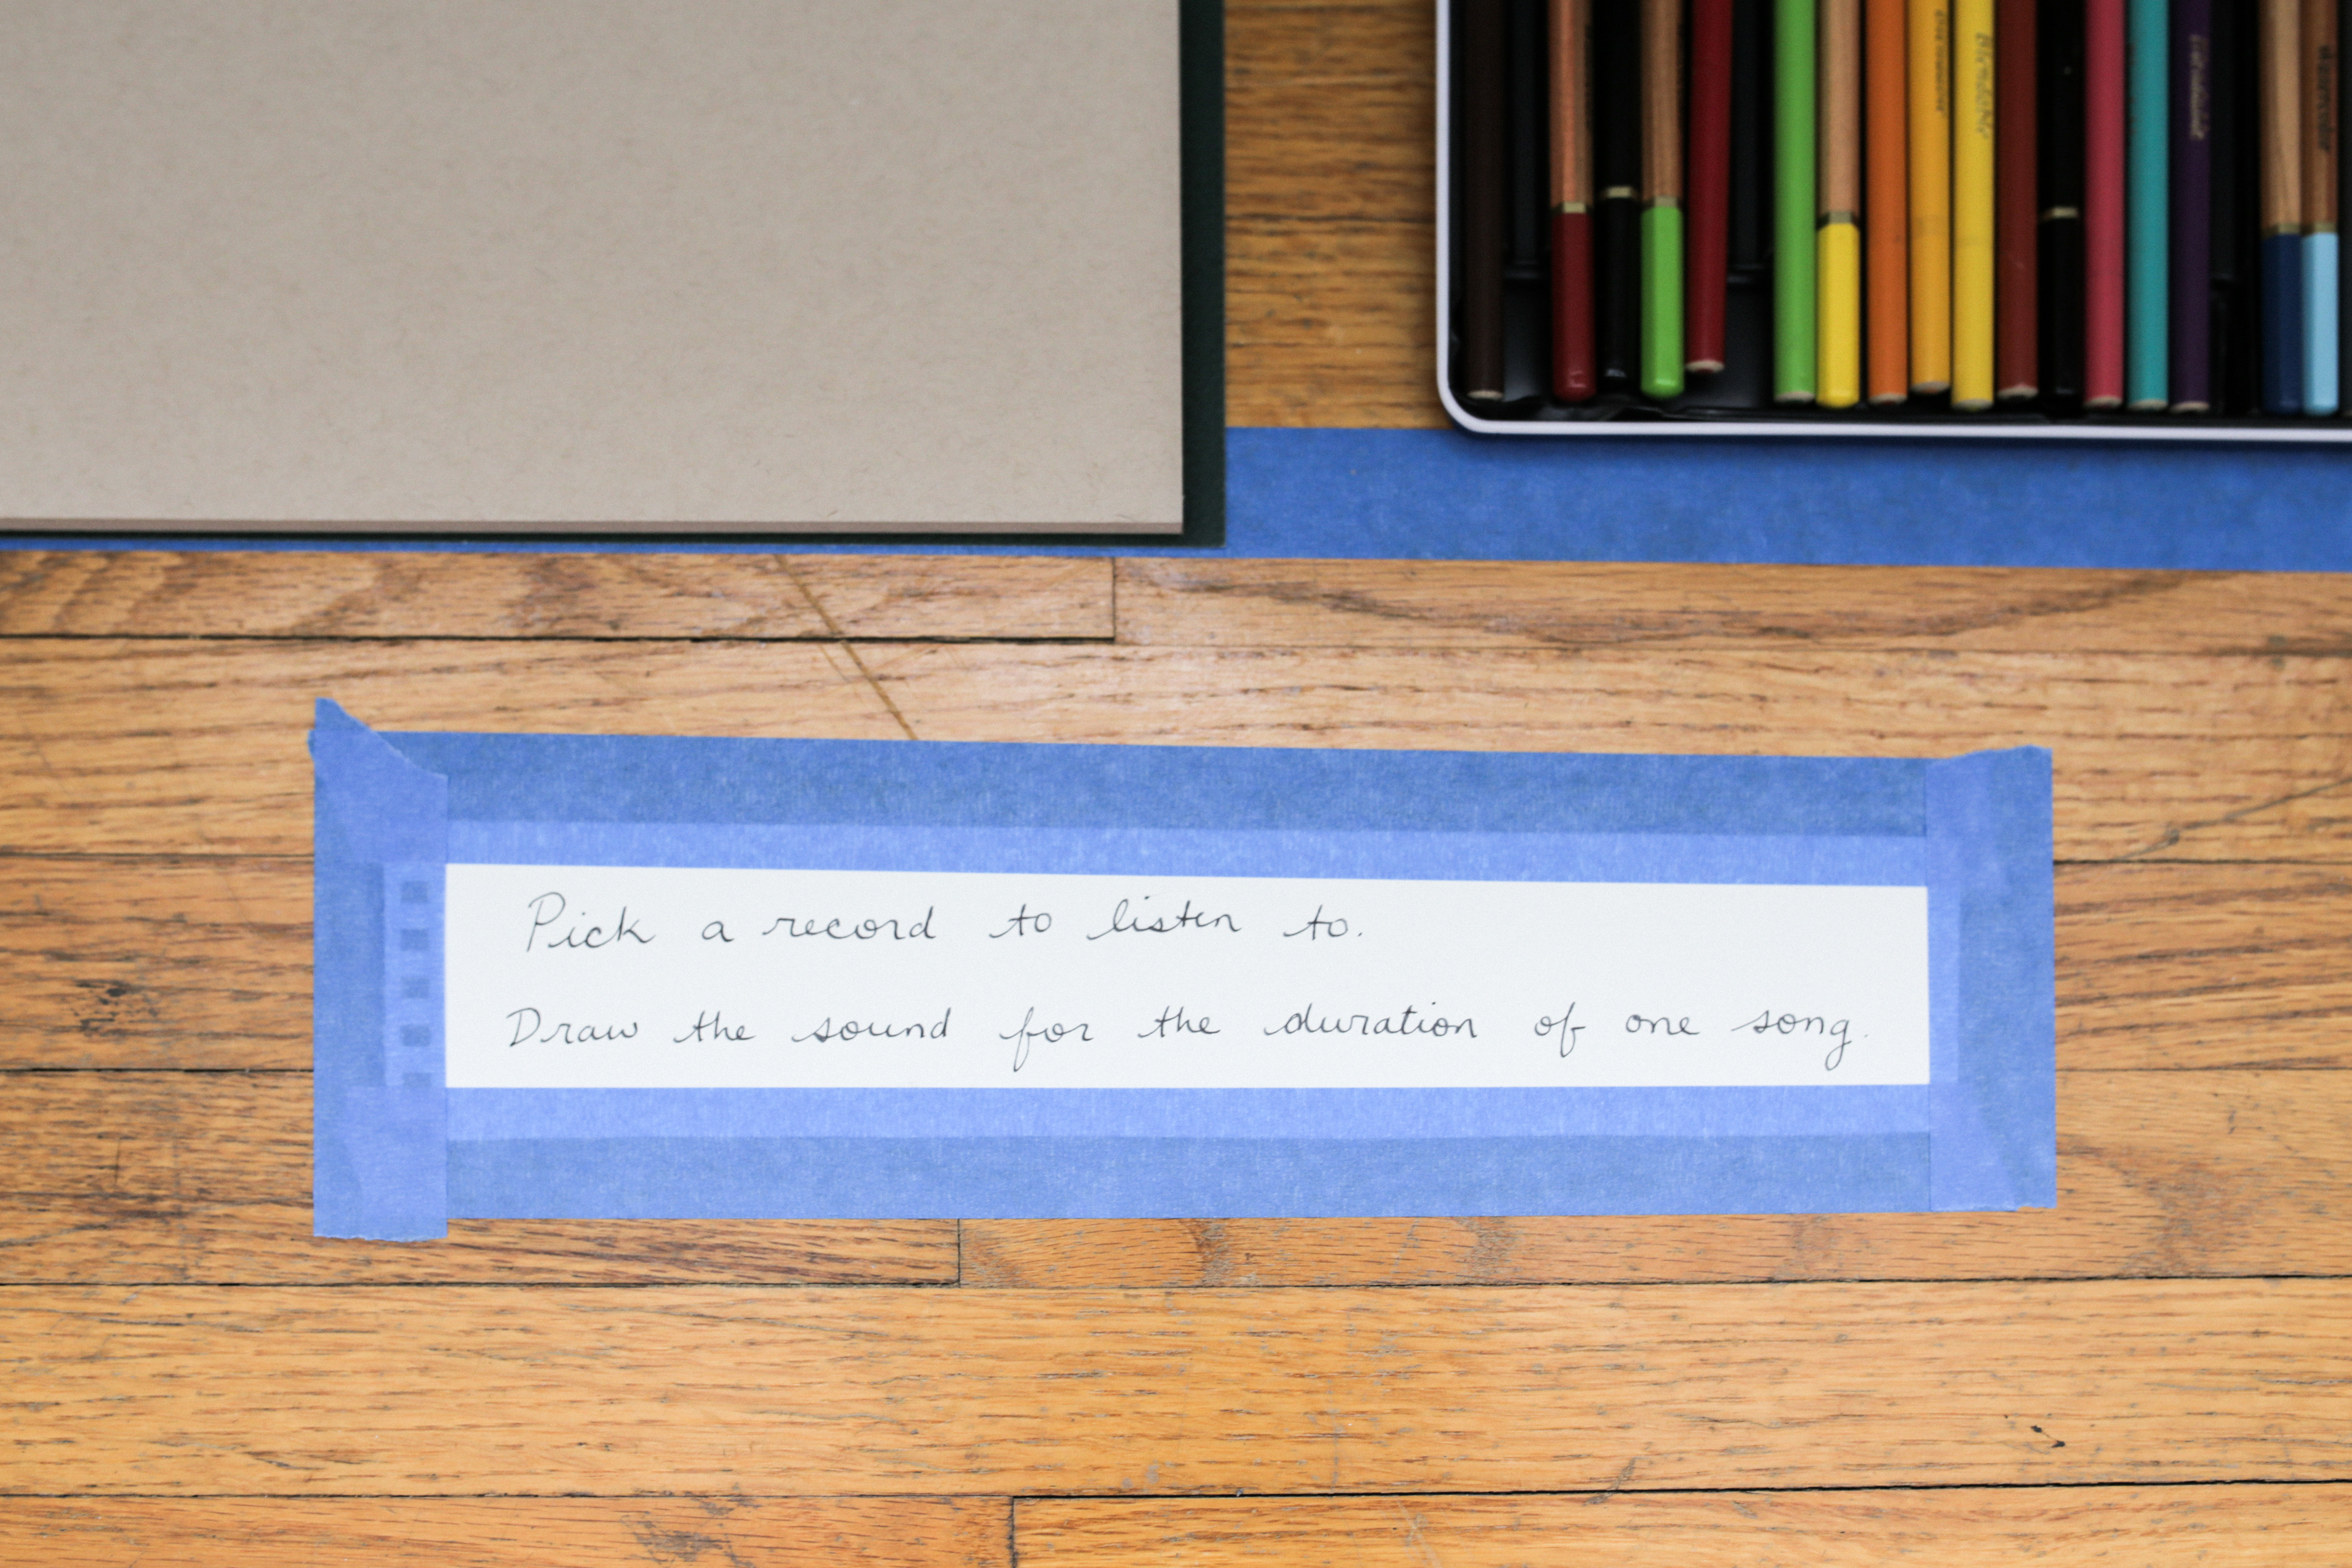 Pick a record to listen to.
Draw the sound for the duration of one song.